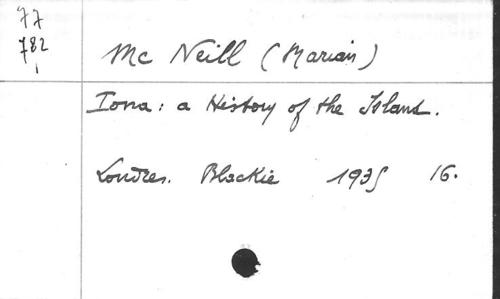 77
782
1
Mc Neill (Marian)
Iona: a History of the Island.
Londres. Blackie 1935 16.